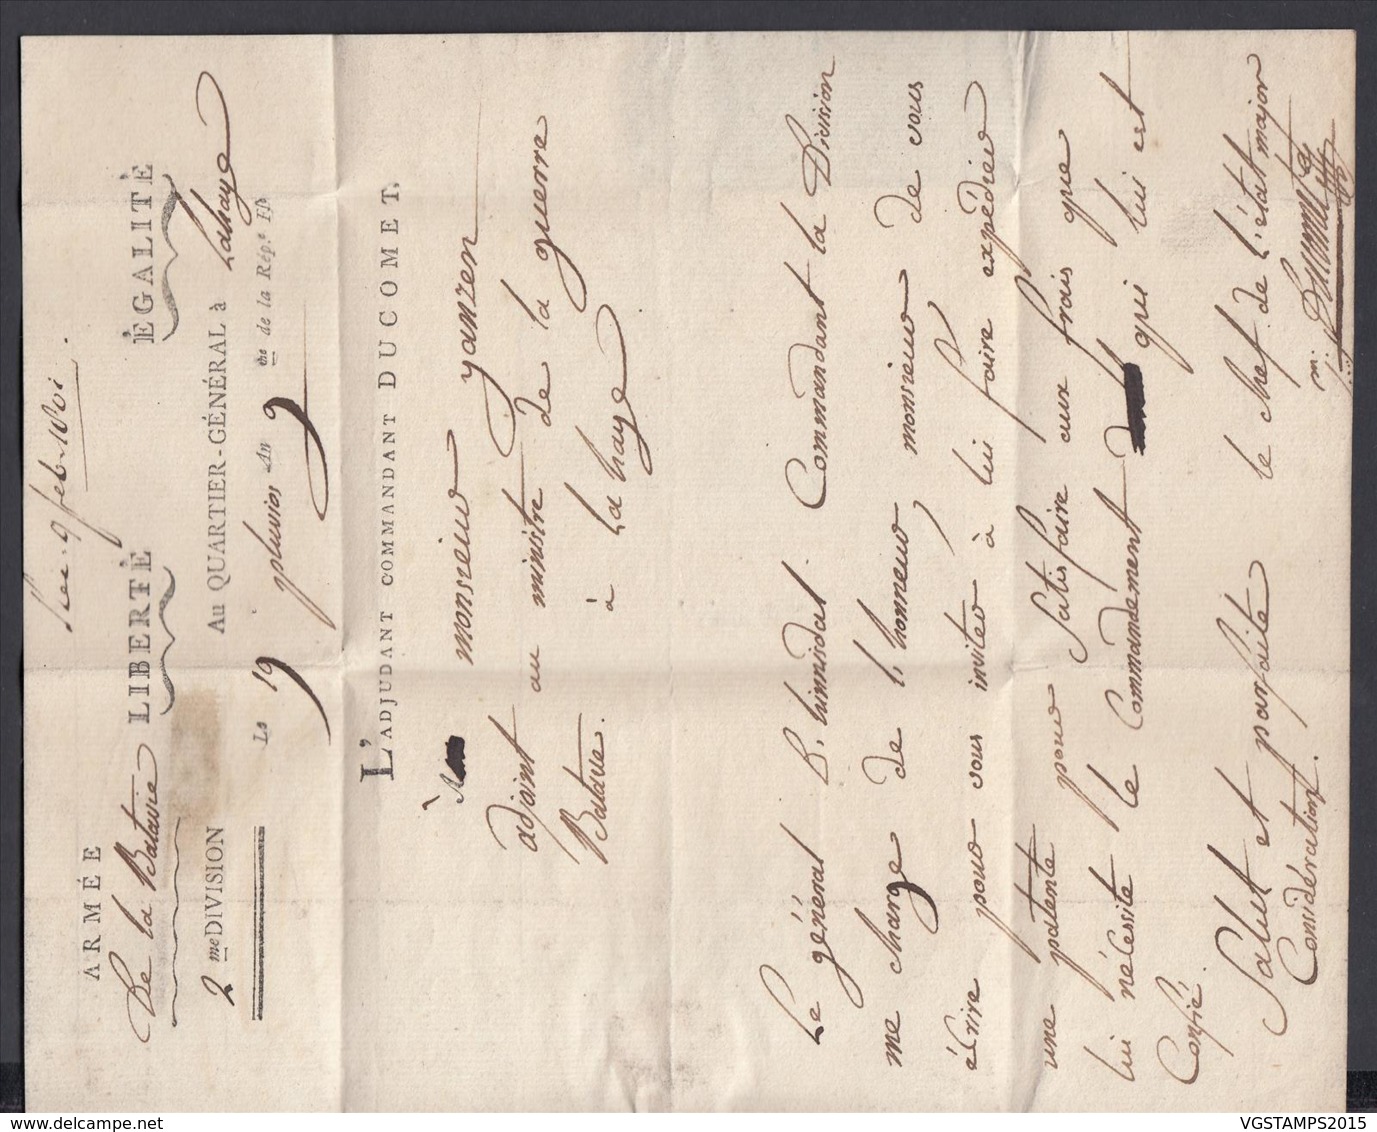 9 feb. 1801.
ARMÉE LIBERTÈ ÈGALITÈ
De la Batavie
2.me DIVISION Au QUARTIER-GÉNÉRAL à Lahaye
Le 19 pluvios An 9 me de la Rép.e
L'ADJUDANT COMMANDANT DUCOMET,
à monsieur yanzen
adjoint au ministre de la guerre
Batave. à La haye
Le général Commandant la Division
me charge de l'honneur monsieur de vous
écrire pour vous inviter à lui faire expédier
une patente pour Satisfaire aux frais que
lui nécessite le Commandément qui lui est
Confié.
Salut et parfaite le chef de l'état major
Considération.
VGSTAMPS2015